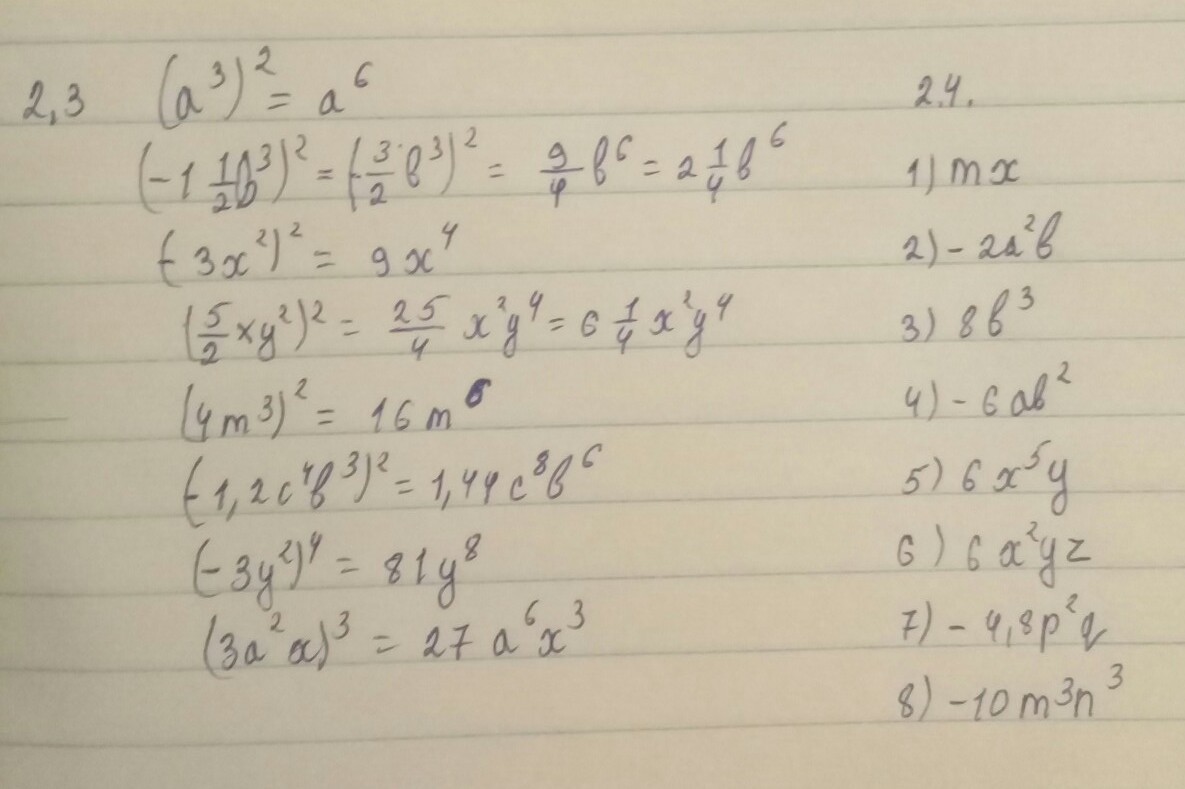 2,3 (a³)² = a⁶
(-1 1/2 b³)² = (-3/2 b³)² = 9/4 b⁶ = 2 1/4 b⁶
(-3x²)² = 9x⁴
(5/2 xy²)² = 25/4 x²y⁴ = 6 1/4 x²y⁴
(4m³)² = 16m⁶
(-1,2c⁴b³)² = 1,44c⁸b⁶
(-3y²)⁴ = 81y⁸
(3a²x)³ = 27a⁶x³
2.4.
1) mx
2) -2a²b
3) 8b³
4) -6ab²
5) 6x⁵y
6) 6x²yz
7) -4,8p²q
8) -10m³n³